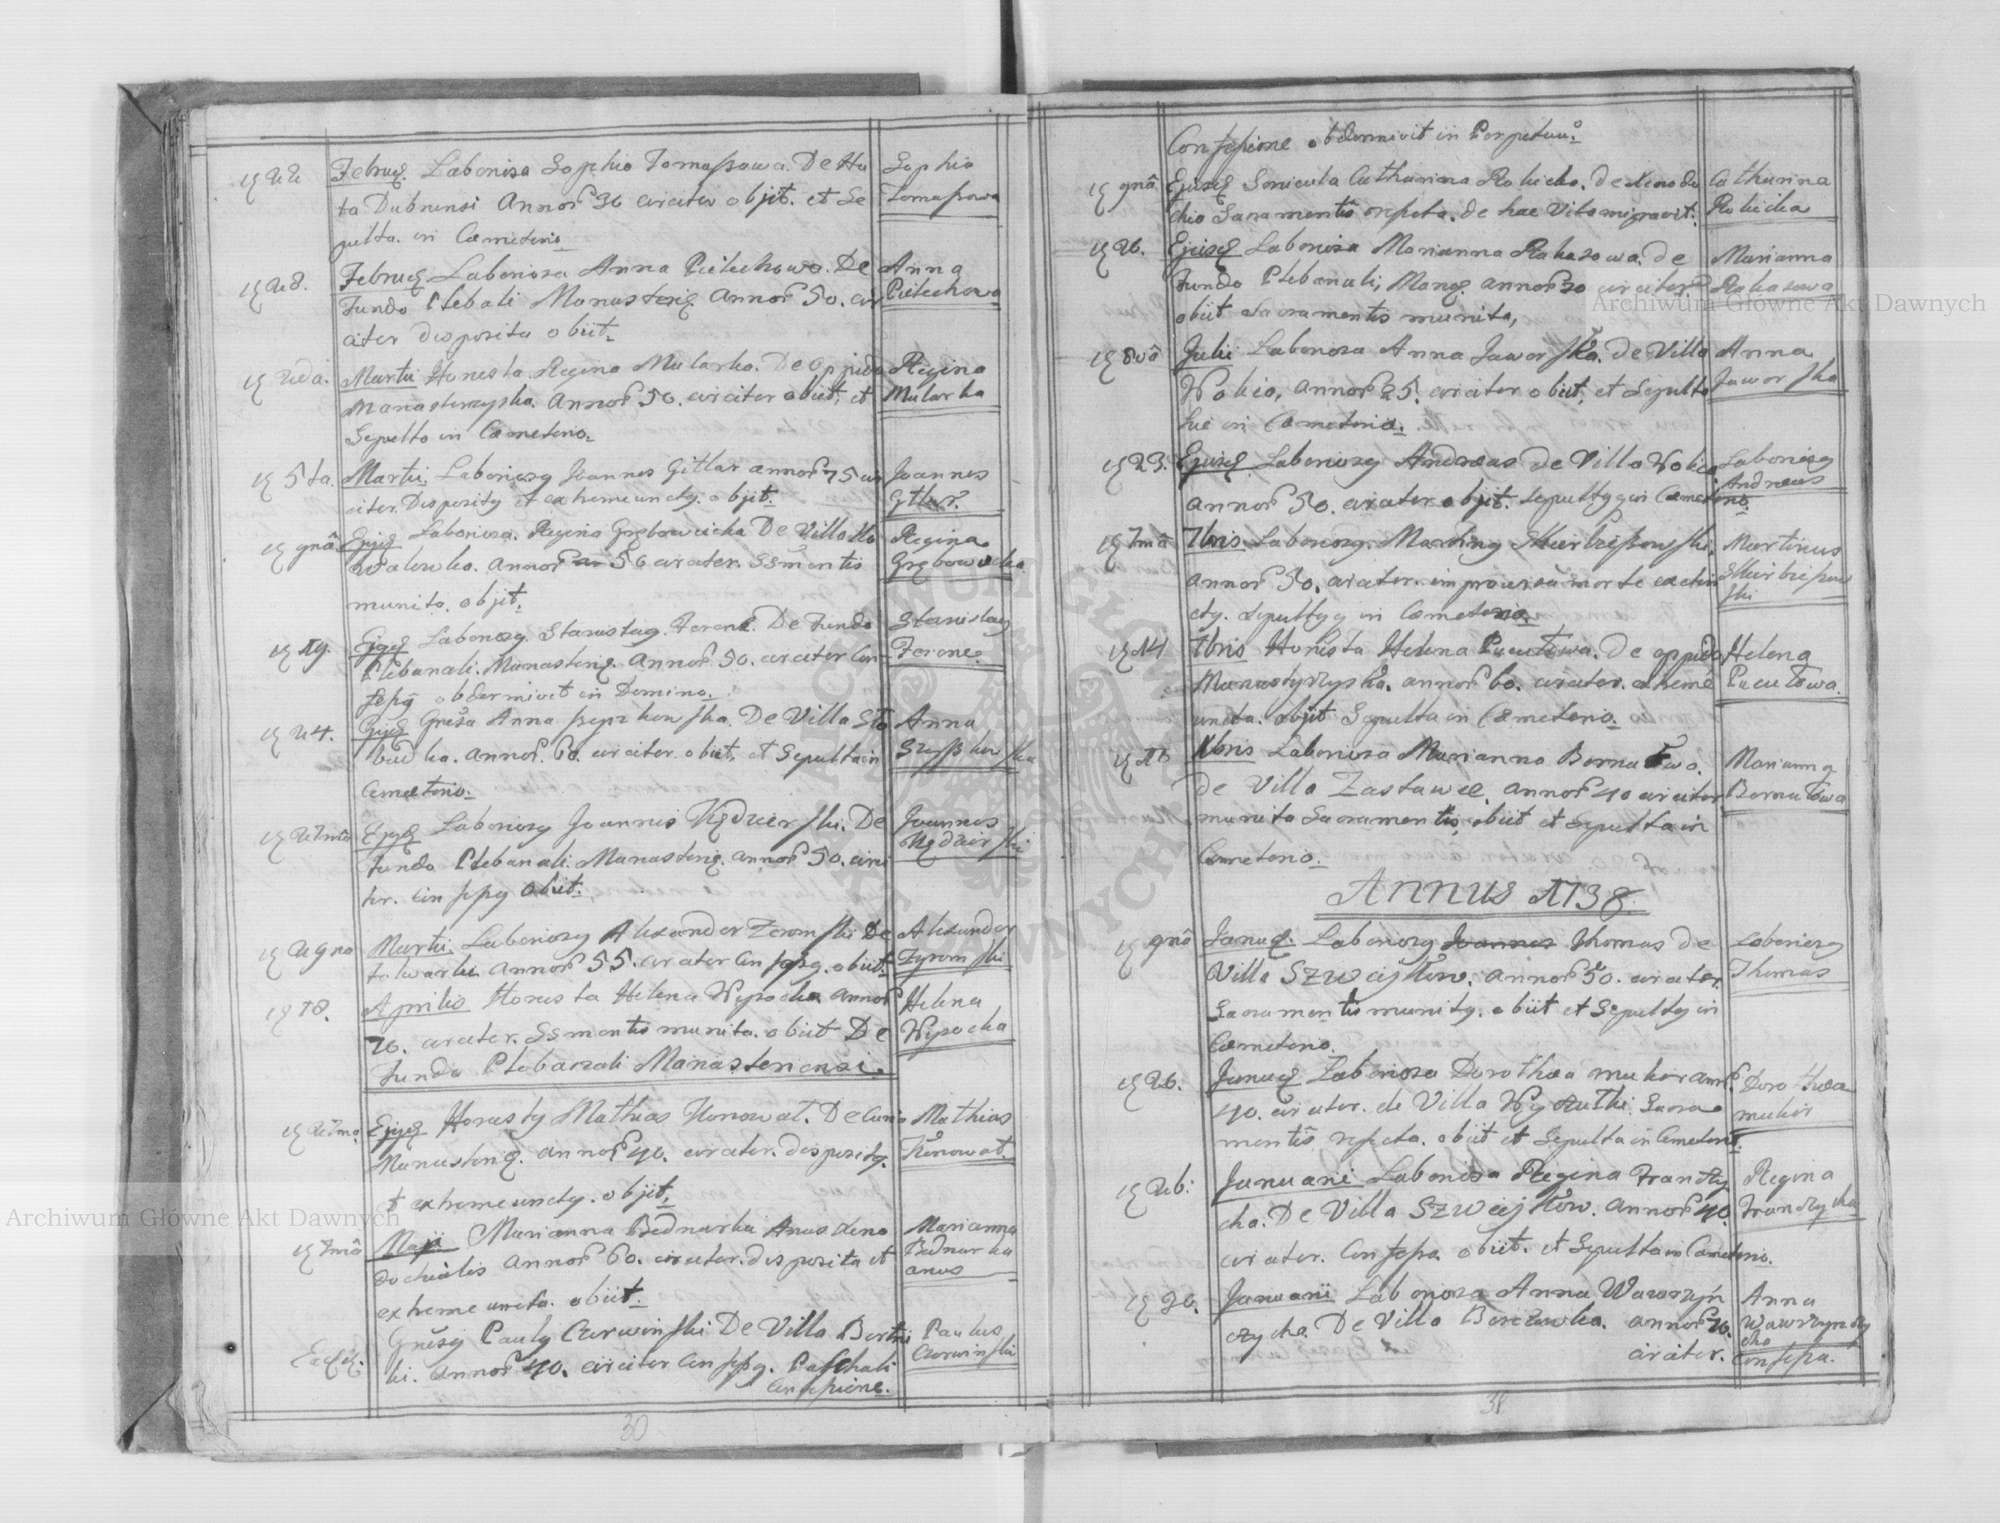 22 Februa. Laboriosa Sophia Tomaszowa. De Hu
ta Dubnensi Annor 36 circiter objit. et Se
pulta. in Cæmeterio
Sophia
Tomaszowa
28. Februa Laboriosa Anna Pielechowa. De
Fundo Plebali Monasteri Annor 50. cir
citer disposita obiit.
Anna
Pielechowa
2da. Martii Honesta Regina Mularka. De oppido
Manasterzyska. Annor 50. circiter obiit, et
Sepulta in Cæmeterio.
Regina
Mularka
5ta. Martii. Laboriosq Joannes Gitlar annor 75 cir
citer. Dispositq et extreme unctq. objit.
Joannes
Gitlar.
9na Ejusq Laboriosa. Regina Grębowiecka De Villa Ko
walowka. Annor 56 circiter. SSmentis
munita. objit.
Regina
Grębowiecka
19. Ejusq Laboriosq. Stanislaq. Ferenc. De Fundo
Plebanali. Monasteri. Annor 50. circiter Con
fessq obdormivit in Domino.
Stanislaq
Ferenc.
24. Ejusq Grsa Anna De Villa Slo
budka. Annor. 60. circiter obiit, et Sepulta in
Cæmeterio.
Anna
27ma Ejusq Laboriosq Joannes Kędzierski. De
Fundo Plebanali Manasteri. annor 50. circi
ter. Confessq obiit.
Joannes
Kędzierski
29no Martii. Laboriosq Alexander Zeromski De
folwarki annor 55. circiter Confessq. obiit.
Alexander
Zyromski
18. Aprilis Honesta Helena Wysocka annor
70. circiter. SSmentis munita. obiit De
Fundo Plebanali Manasteriensi.
Helena
Wysocka
27mo. Ejusq Honestq Mathias Konowal. De
Manasteri. annor 40. circiter. dispositq.
et extreme unctq. objit.
Mathias
Konowal.
7ma Maji Marianna Bednarka Anus Xeno
dochialis annor 60. circiter. disposita et
extreme uncta. obiit.
Marianna
Bednarka
anus
Eadem. Grsq Paulq Czerwinski De Villa Bertni
ki. Annor 40. circiter Confessq. Paschali
Confessione.
Paulus
Czerwinski
30
Confessione obdormivit in Perpetuu.
9na Ejusq Smicula Catharina Rokicka. de Xenodo
chio Sacramentis refecta. de hac Vita migravit.
Catharina
Rokicka
26. Ejusq Laboriosa Marianna Rakasowa. de
Fundo Plebanali, Mona. annor 30 circiter
obiit Sacramentis munita,
Marianna
Rakasowa
8va Julii Laboriosa Anna Jaworska. de Villa
Wolica, annor 25. circiter obiit, et Sepulta
hic in Cæmeterio.
Anna
Jaworska
23. Ejusq Laboriosq Andreas de Villa Wolica
annor 50. circiter objit. Sepultq in Cæmeterio.
Laboriosq
Andreas
7ma 7bris Laboriosq. Martinq Skurbiszowski.
annor 50. circiter. improvisa morte extin
ctq. Sepultq in Cæmeterio.
Martinus
Skurbiszow
ski
14 7bris Honesta Helena Pacutowa. De oppido
Manastyrzyska. annor 60. circiter. extreme
uncta. objit Sepulta in Cæmeterio.
Helena
Pacutowa.
Xbris Laboriosa Marianna Bernatowa.
de Villa Zastawce. annor 40 circiter
munita Sacramentis, obiit et Sepulta in
Cæmeterio.
Marianna
Bernatowa
Annus 1738.
9na Janua. Laboriosq Joannes Thomas de
Villa Szweistow. annor 50. circiter.
Sacramentis munitq. obiit et Sepultq in
Cæmeterio.
Laboriosq
Thomas
26. Janua Laboriosa Dorothea mukor annor
40. circiter. de Villa Wyczulki. Sacra
mentis refecta. obiit et Sepulta in Cæmeterio.
Dorothea
mukor
26. Januarii Laboriosa Regina Frandzy
cha. De Villa Szweistow. annor 40.
circiter. Confessa. obiit. et Sepulta in Cæmeterio.
Regina
Frandzycha
30. Januarii Laboriosa Anna Wawrzyn
czycha. De Villa Berezowka. annor 70.
circiter.
Anna
Wawrzynczy
cha
Confessa.
31
Archiwum Główne Akt Dawnych
Archiwum Główne Akt Dawnych
ARCHIWUM GŁÓWNE AKT DAWNYCH